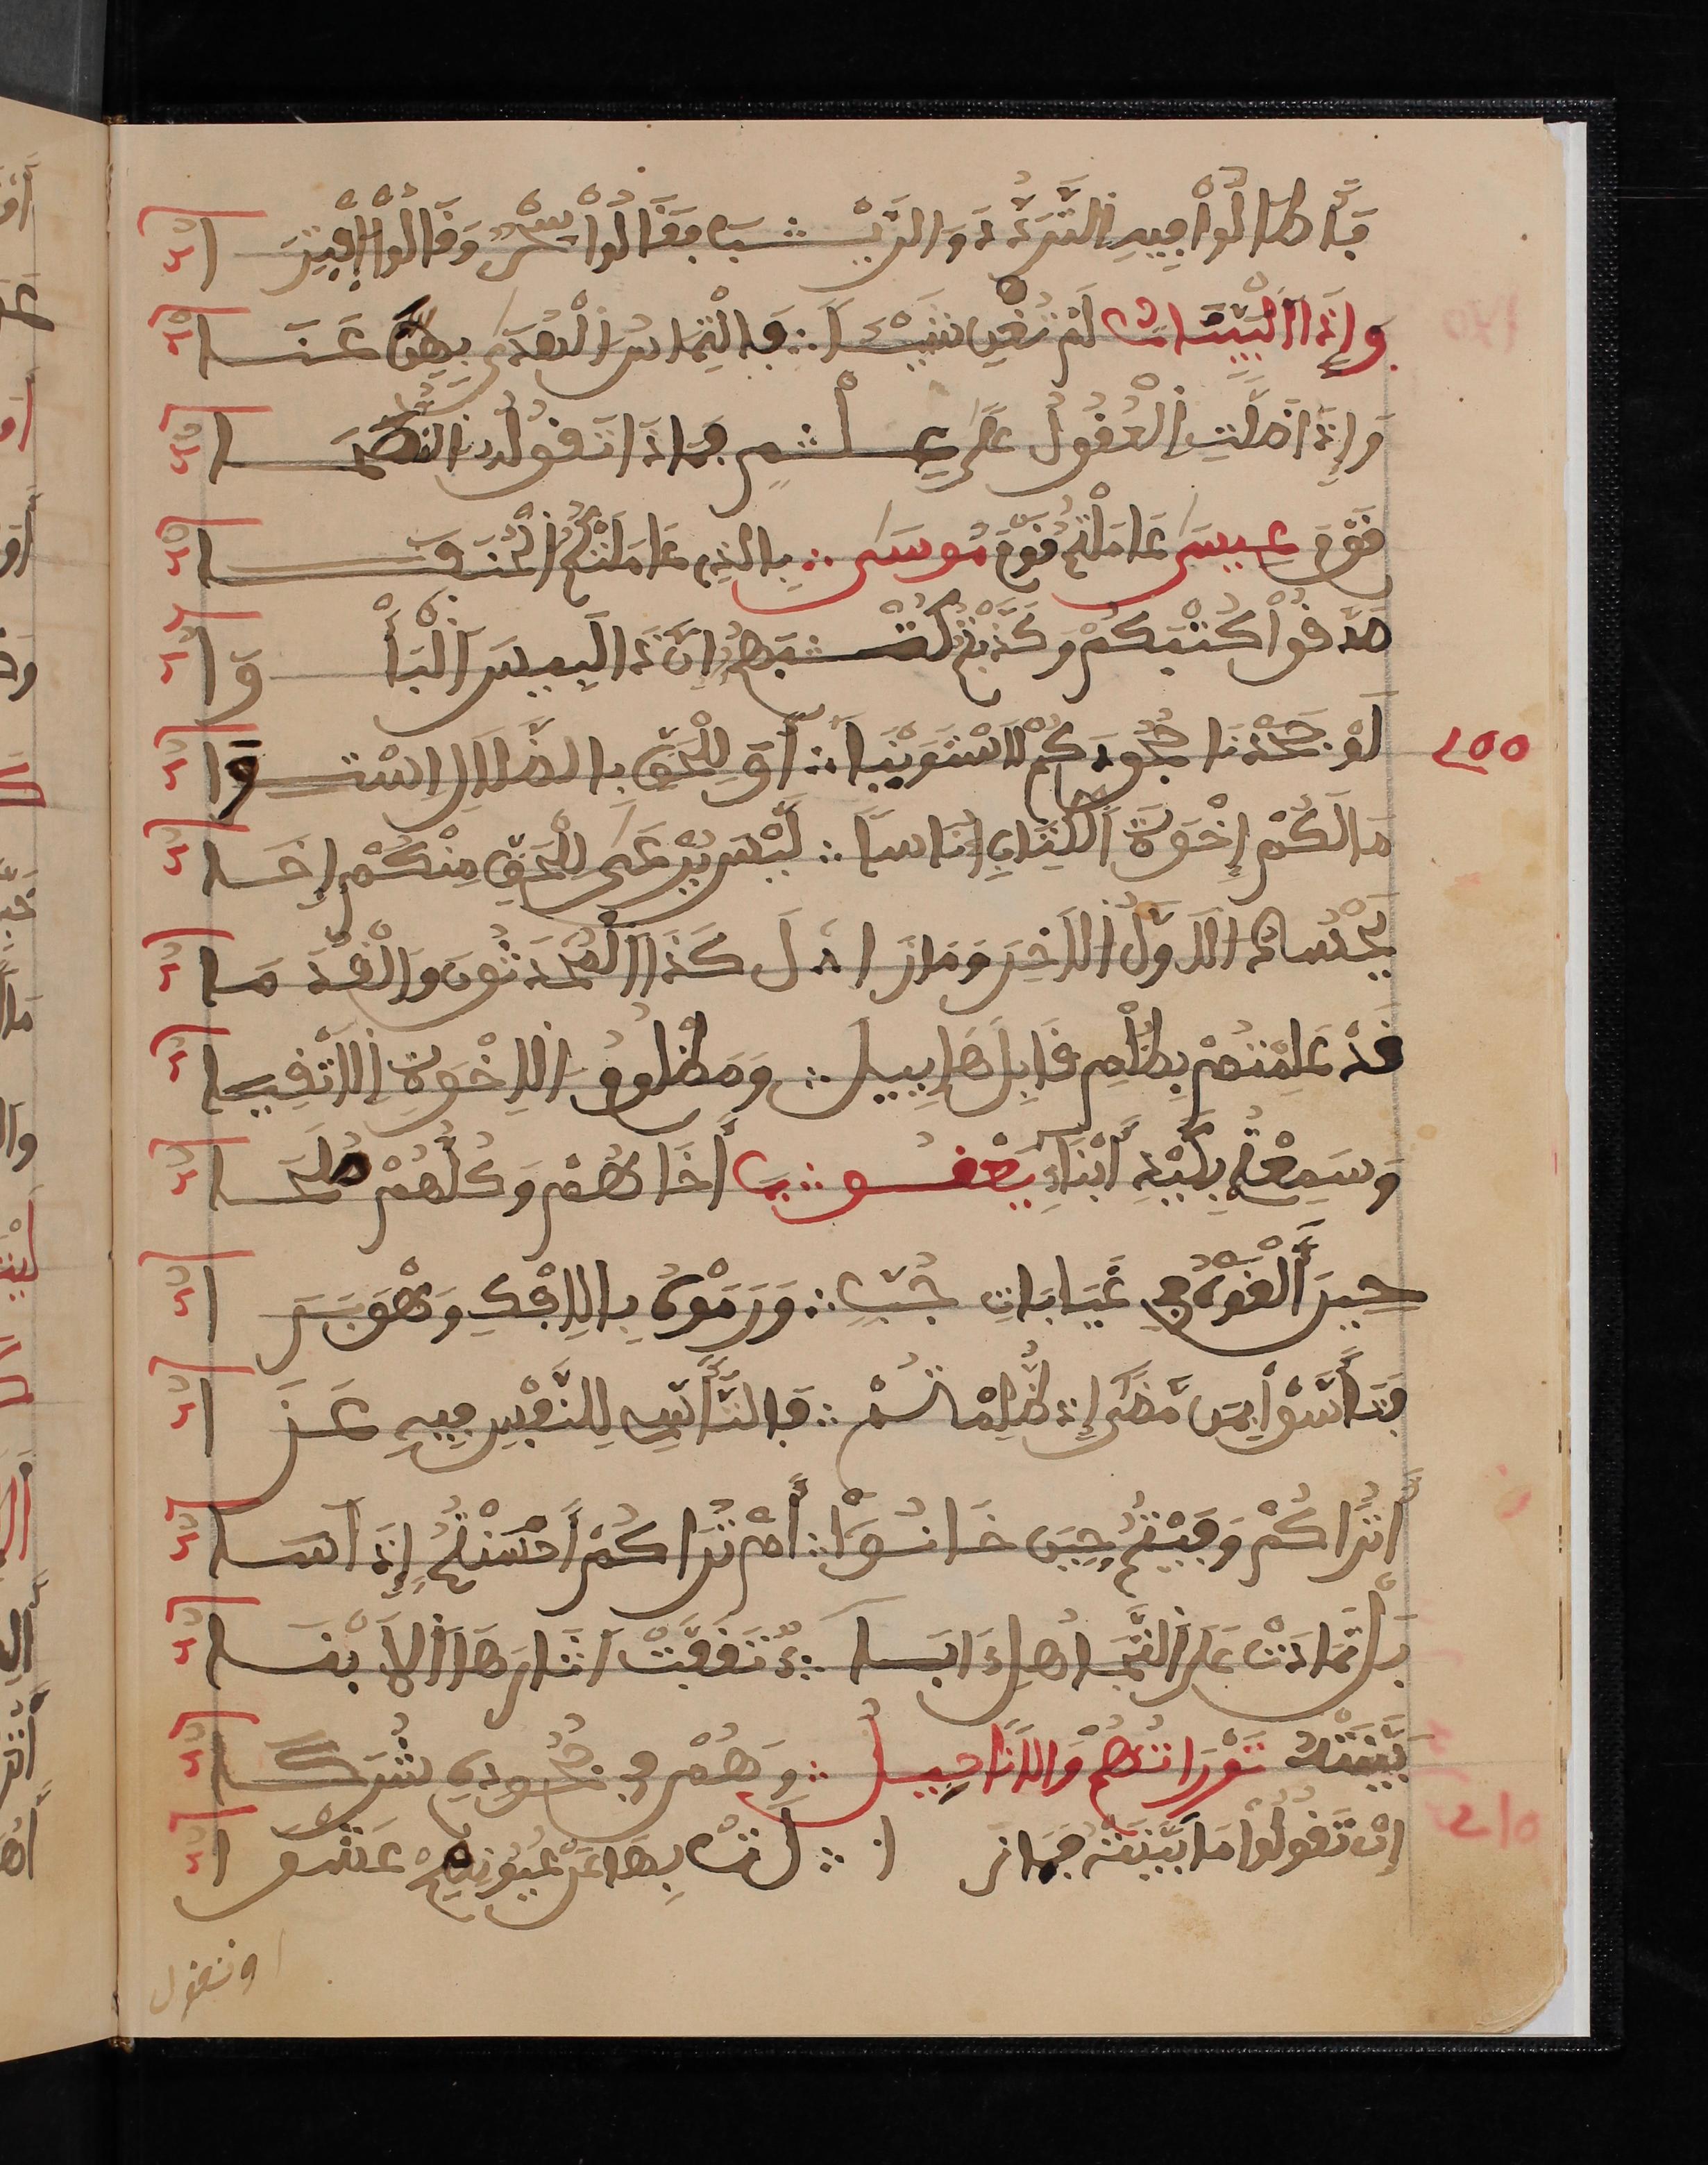 فَأَطَالُوا فِيهِ التَّرَدُّدَ وَالرَّيْـ ∴ ـبَ فَقَالُوا سِحْرٌ وَقَالُوا افْتِرَا ءُ
وَإِذَا الْبَيِّنَاتُ لَمْ تُغْنِ شَيْئًا ∴ فَالْتِمَاسُ الْهُدَى بِهِنَّ عَنَا ءُ
وَإِذَا ضَلَّتِ الْعُقُولُ عَلَى عِـ ∴ ـلْمٍ فَمَاذَا تَقُولُهُ النُّصَحَا ءُ
قَوْمَ عِيسَى عَامَلْتُمُ قَوْمَ مُوسَى ∴ بِالَّذِي عَامَلَتْكُمُ الْحُنَفَا ءُ
صَدَّقُوا كُتْبَكُمْ وَكَذَّبْتُمُ كُتْـ ∴ ـبَهُمُ إِنَّ ذَا لَبِيسَ الْبَوَا ءُ
لَوْ جَحَدْنَا جُحُودَكُمْ لَاسْتَوَيْنَا ∴ أَوَ لِلْحَقِّ بِالضَّلَالِ اسْتِوَا ءُ
٢٥٥
مَا لَكُمْ إِخْوَةَ الْكِتَابِ أُنَاسًا ∴ لَيْسَ يُرْعَى لِلْحَقِّ مِنْكُمْ إِخَا ءُ
يَحْسُدُ الْأَوَّلُ الْأَخِيرَ وَمَا زَا ∴ لَ كَذَا الْمُحْدَثُونَ وَالْقُدَمَا ءُ
قَدْ عَلِمْتُمْ بِظُلْمِ قَابِيلَ هَابِيلَ ∴ وَمَظْلُومُ الْإِخْوَةِ الْأَتْقِيَا ءُ
وَسَمِعْتُمْ بِكَيْدِ أَبْنَاءِ يَعْقُو ∴ بَ أَخَاهُمْ وَكُلُّهُمْ صُلَحَا ءُ
حِينَ أَلْقَوْهُ فِي غَيَابَاتِ جُبٍّ ∴ وَرَمَوْهُ بِالْإِفْكِ وَهْوَ بَرَا ءُ
فَتَأَسَّوْا بِمَنْ مَضَى إِذْ ظُلِمْتُمْ ∴ فَالتَّأَسِّي لِلنَّفْسِ فِيهِ عَزَا ءُ
أَتُرَاكُمْ وَفَيْتُمُ حِينَ خَانُوا ∴ أَمْ تُرَاكُمْ أَحْسَنْتُمُ إِذْ أَسَا ءُوا
بَلْ تَمَادَتْ عَلَى التَّجَاهُلِ ءَابَا ∴ ءٌ تَقَفَّتْ آثَارَهَا الْأَبْنَا ءُ
بَيَّنَتْهُ تَوْرَاتُهُمْ وَالْأَنَاجِيلُ ∴ وَهُمْ فِي جُحُودِهِ شُرَكَا ءُ
إِنْ تَقُولُوا مَا بَيَّنَتْهُ فَمَا زَا ∴ لَتْ بِهَا عَنْ عُيُونِهِمْ غَشْوَا ءُ
٢١٥
او تقول